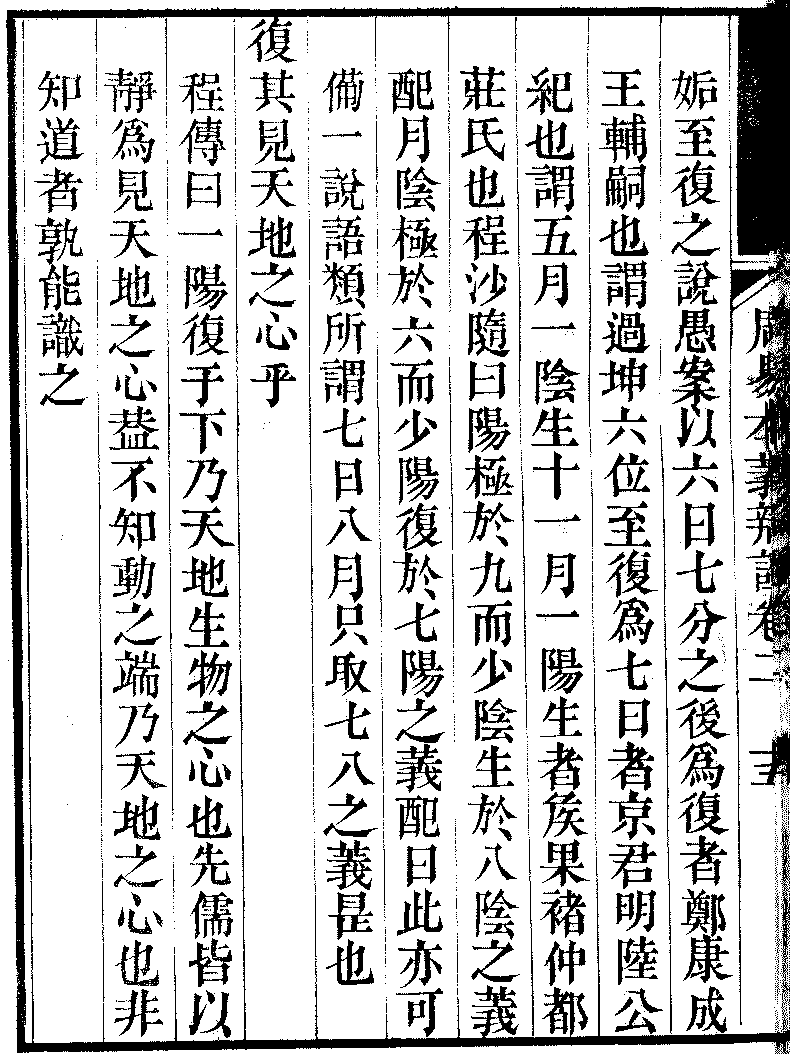 姤至復之說愚案以六日七分之後爲復者鄭康成
王輔嗣也謂過坤六位至復爲七日者京君明陸公
紀也謂五月一陰生十一月一陽生者矦果褚仲都
莊氏也程沙隨曰陽極於九而少陰生於八陰之義
配月陰極於六而少陽復於七陽之義配日此亦可
備一說語類所謂七日八月只取七八之義是也
復其見天地之心乎
程傳曰一陽復于下乃天地生物之心也先儒皆以
靜爲見天地之心葢不知動之端乃天地之心也非
知道者孰能識之
周易本義辨證卷二